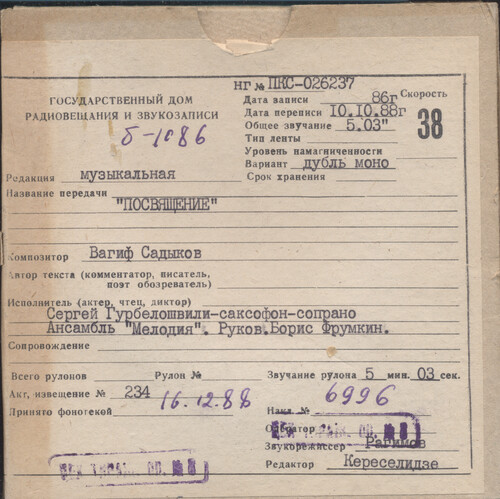 НГ № ПКС-026237
ГОСУДАРСТВЕННЫЙ ДОМ
РАДИОВЕЩАНИЯ И ЗВУКОЗАПИСИ
Дата записи 86г
Скорость
38
Дата переписи 10.10.88г
Общее звучание 5.03"
Тип ленты
Уровень намагниченности
Вариант дубль моно
Срок хранения
б-1086
Редакция музыкальная
Название передачи
"ПОСВЯЩЕНИЕ"
Композитор Вагиф Садыков
Автор текста (комментатор, писатель,
поэт обозреватель)
Исполнитель (актер, чтец, диктор)
Сергей Гурбелошвили-саксофон-сопрано
Ансамбль "Мелодия". Руков.Борис Фрумкин.
Сопровождение
Всего рулонов Рулон № Звучание рулона 5 мин. 03 сек.
Акт, извещение № 234 16.12.88
Принято фонотекой
Накл. № 6996
Оператор
Звукорежиссер Рагимов
Редактор Кереселидзе